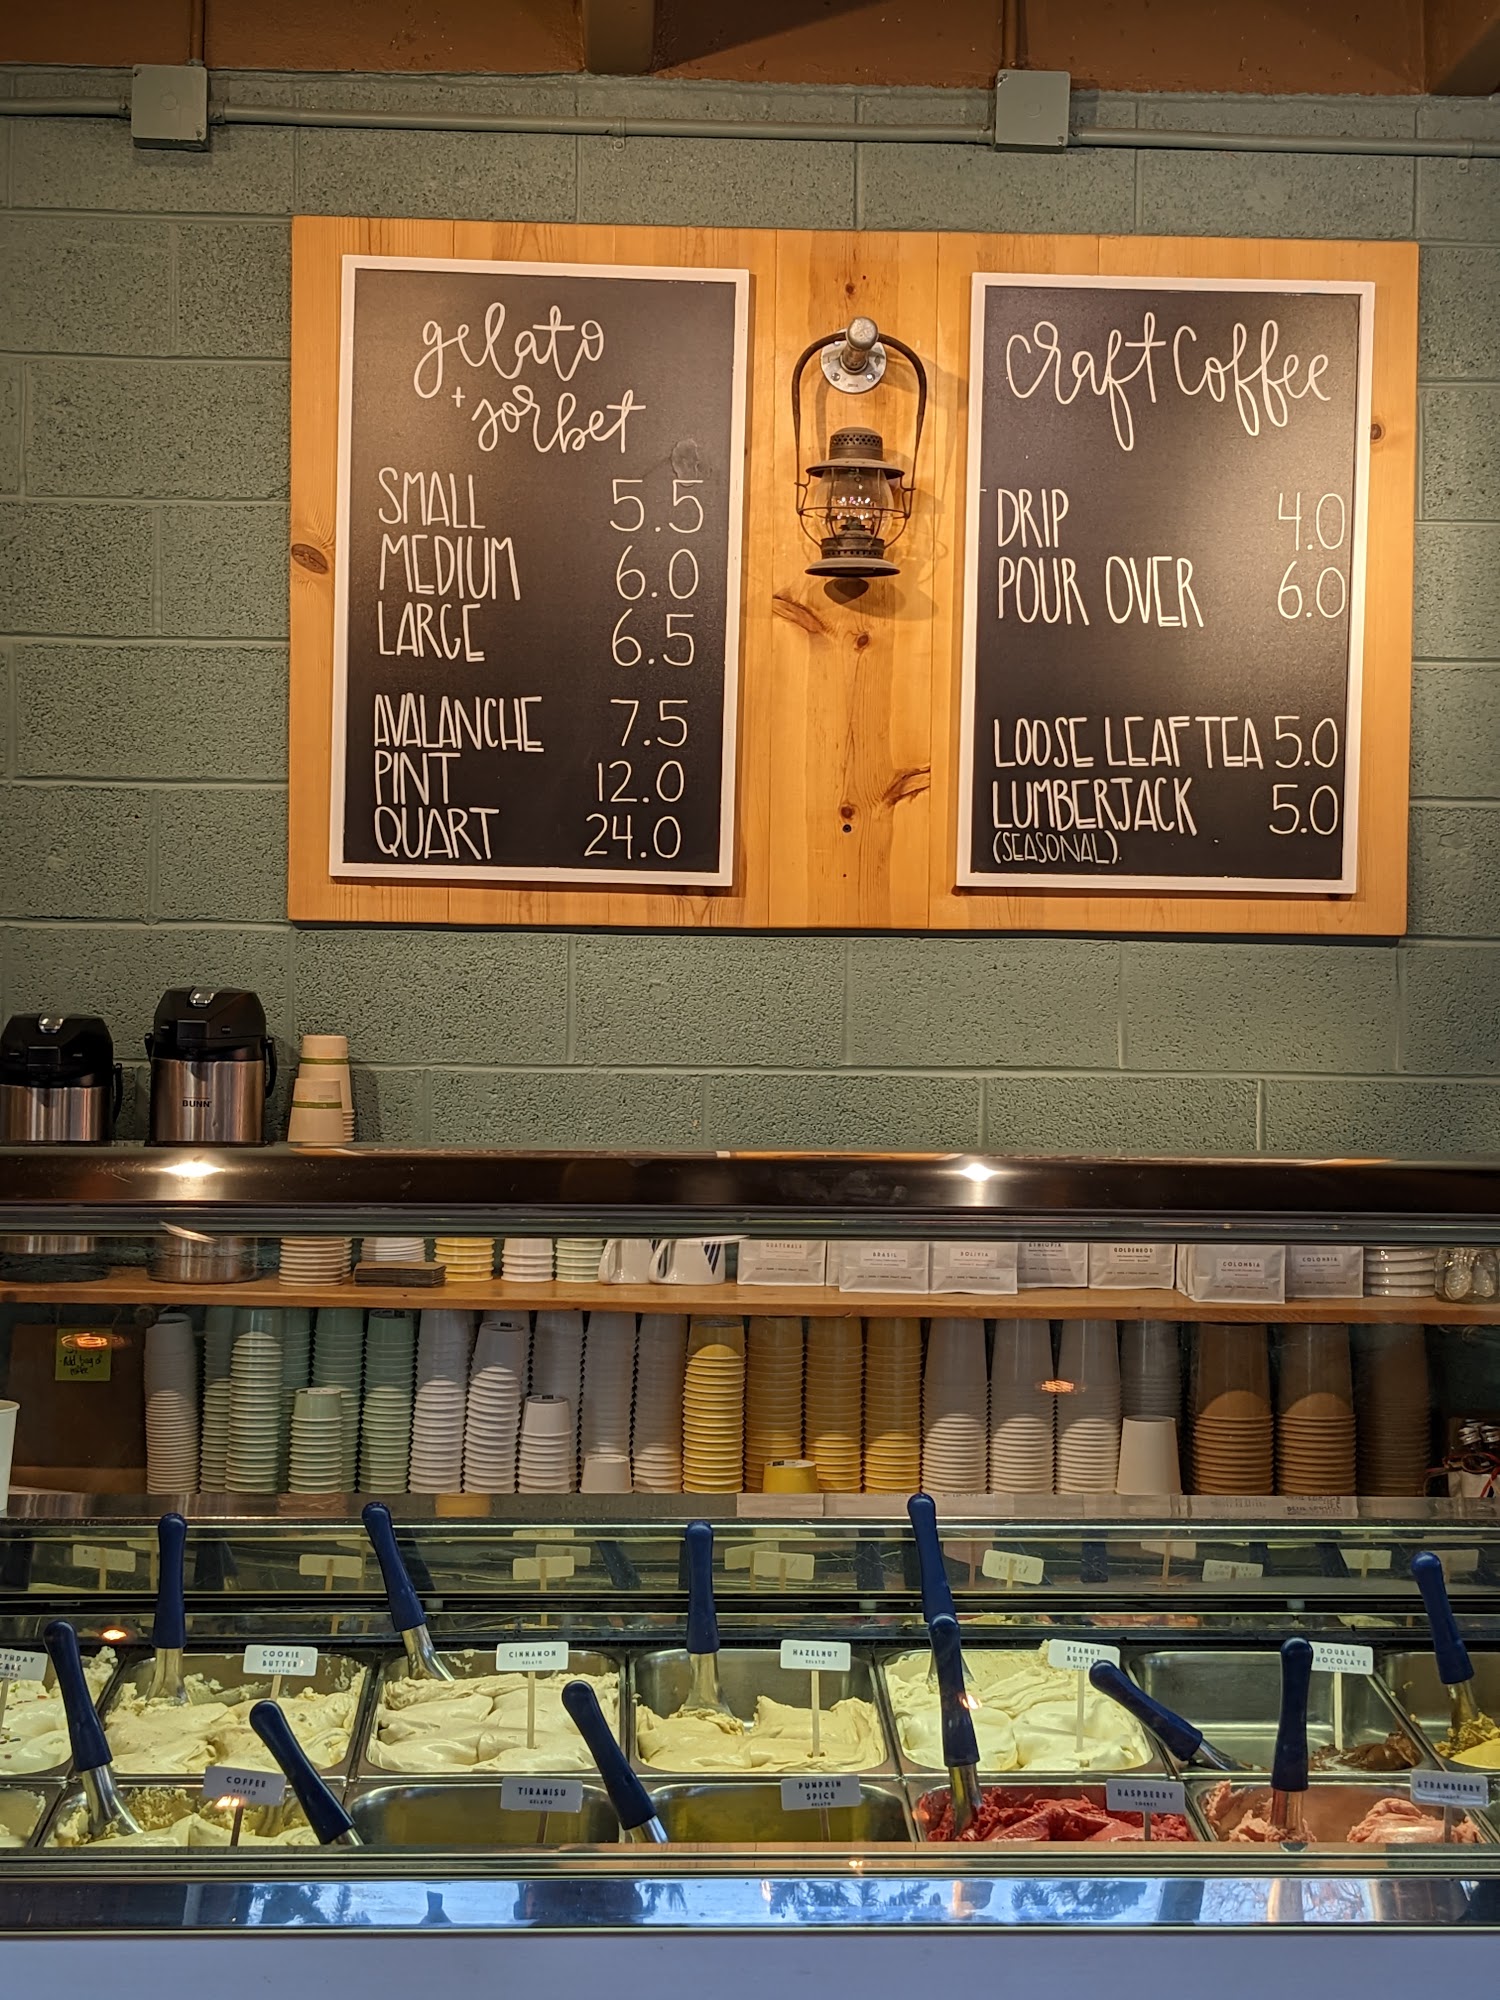 gelato
+ sorbet
SMALL 5.5
MEDIUM 6.0
LARGE 6.5
AVALANCHE 7.5
PINT 12.0
QUART 24.0
Craft Coffee
DRIP 4.0
POUR OVER 6.0
LOOSE LEAF TEA 5.0
LUMBERJACK 5.0
(SEASONAL).
BUNN
GUATEMALA
BRASIL
BOLIVIA
ETHIOPIA
COLOMBIA
COLOMBIA
Add bag of
COOKIE
BUTTER
GELATO
CINNAMON
GELATO
HAZELNUT
GELATO
PEANUT
BUTTER
DOUBLE
CHOCOLATE
GELATO
COFFEE
GELATO
TIRAMISU
GELATO
PUMPKIN
SPICE
GELATO
RASPBERRY
SORBET
STRAWBERRY
SORBET